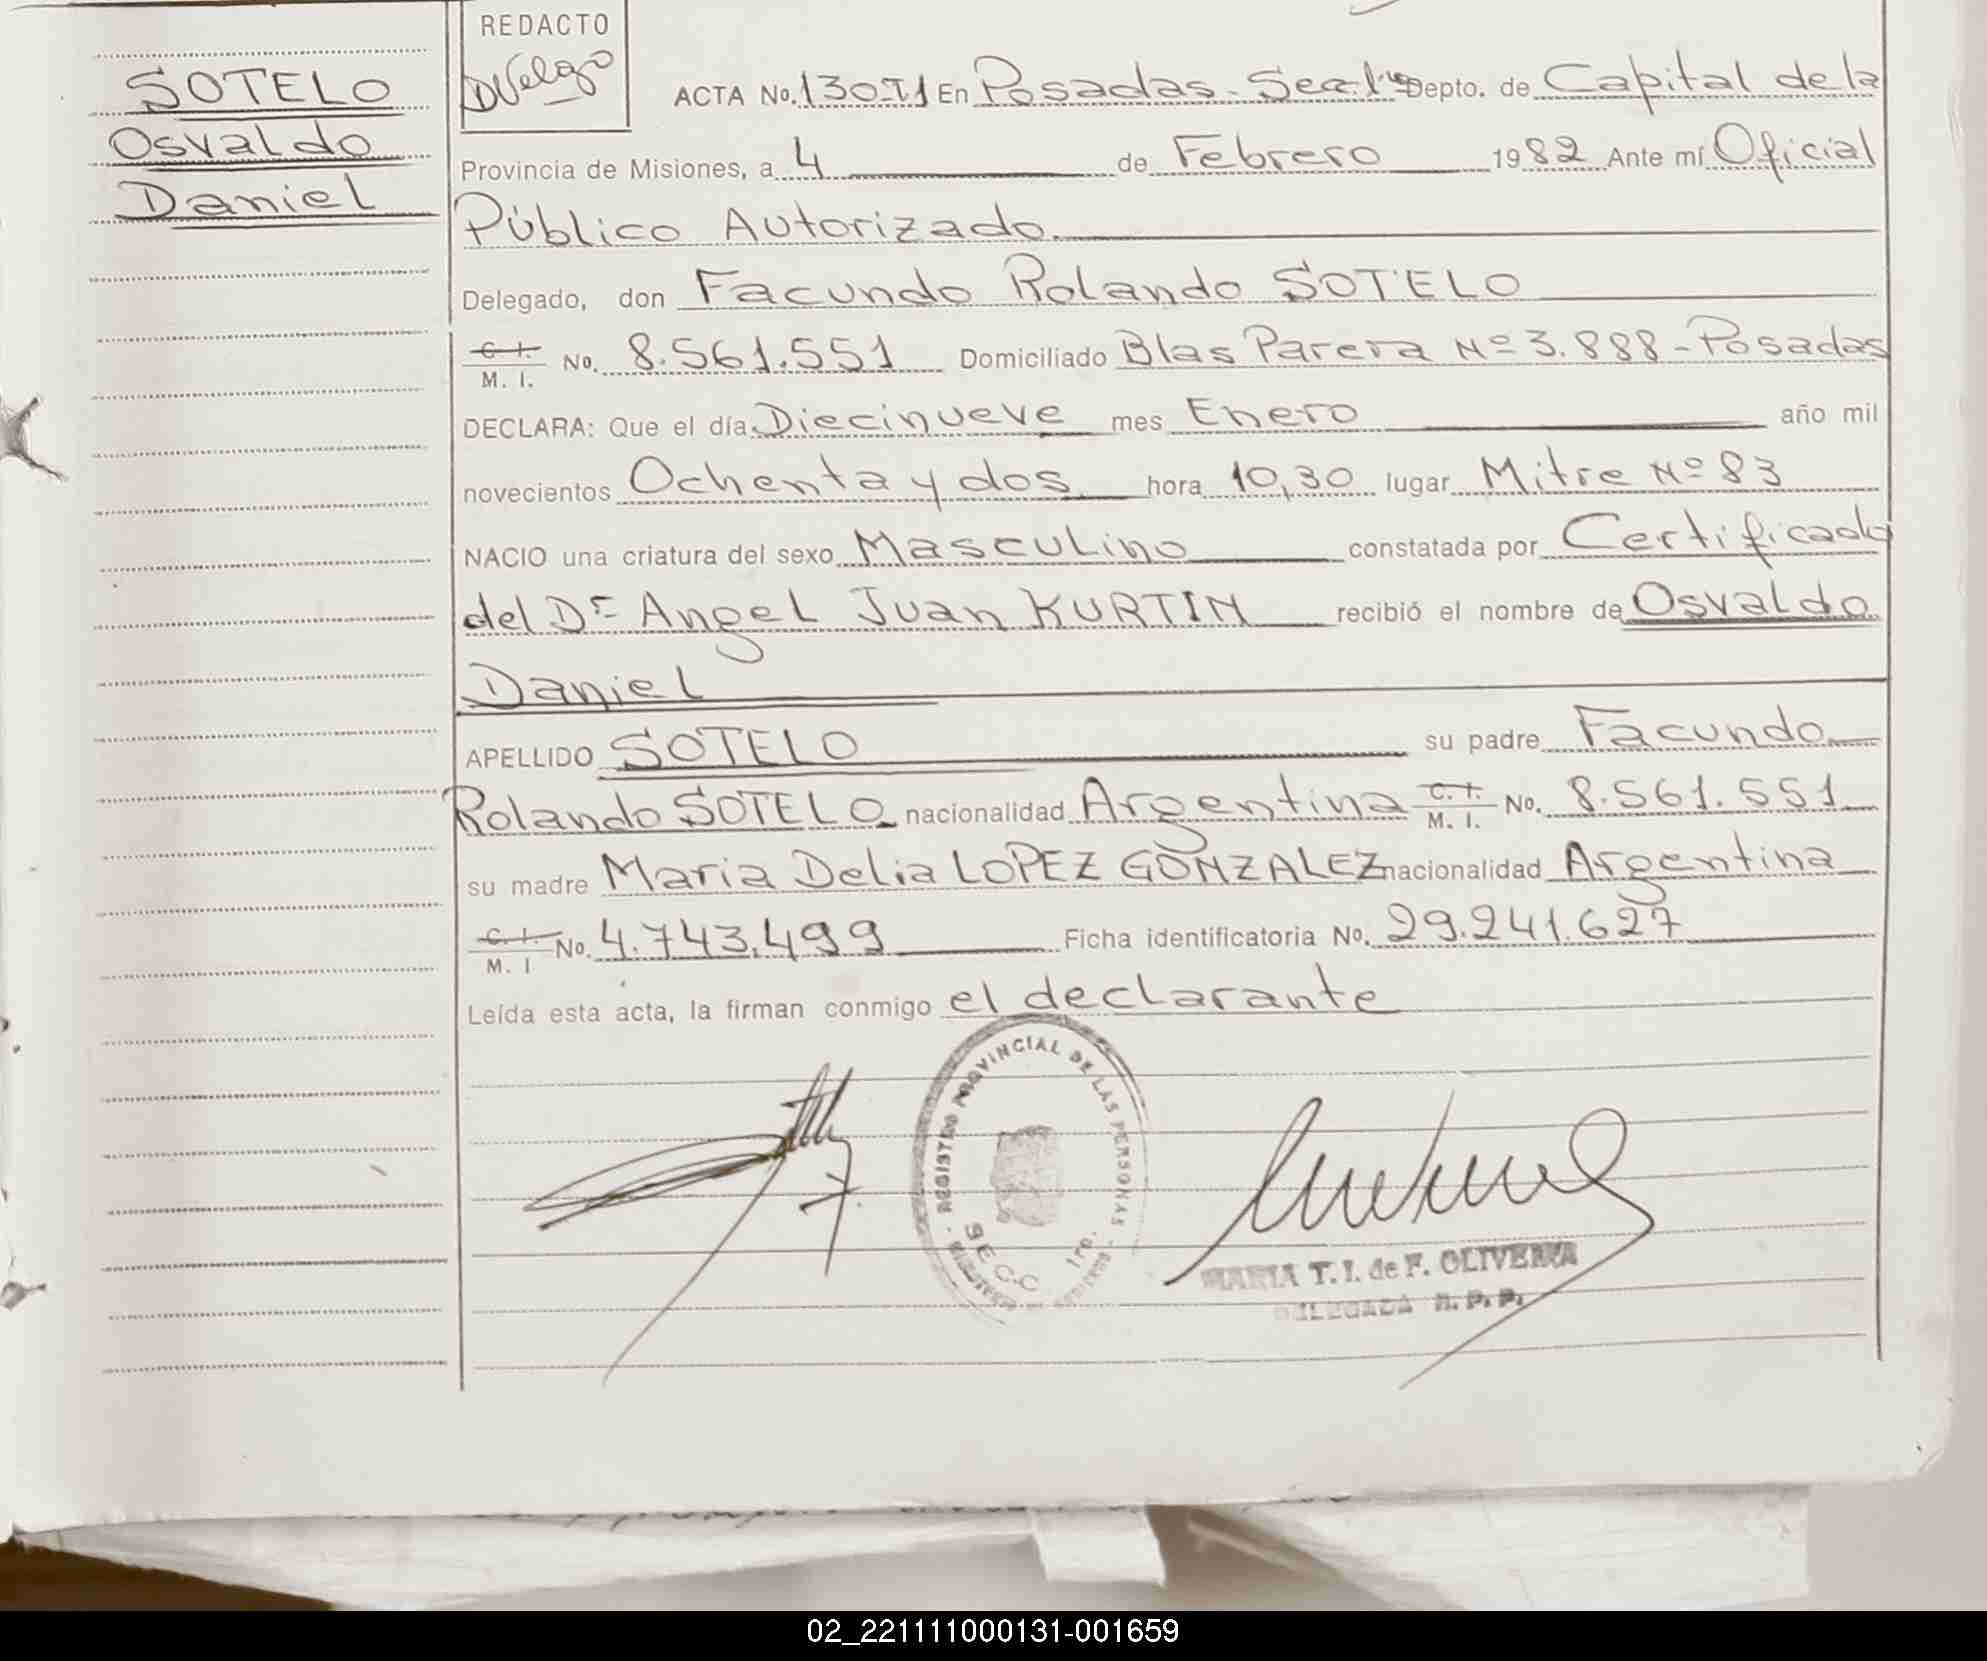 REDACTO
SOTELO
Osvaldo
Daniel
ACTA No. 130-T1 En Posadas - Secc. 1ra Depto. de Capital de la
Provincia de Misiones, a 4 de Febrero 1982 Ante mí Oficial
Público Autorizado.
Delegado, don Facundo Rolando SOTELO
C. I. M. I. No. 8.561.551 Domiciliado Blas Parera Nº 3.888 - Posadas
DECLARA: Que el día Diecinueve mes Enero año mil
novecientos Ochenta y dos hora 10,30 lugar Mitre Nº 83
NACIO una criatura del sexo Masculino constatada por Certificado
del Dr Angel Juan KURTIN recibió el nombre de Osvaldo
Daniel
APELLIDO SOTELO su padre Facundo
Rolando SOTELO nacionalidad Argentina C. I. M. I. No. 8.561.551
su madre Maria Delia LOPEZ GONZALEZ nacionalidad Argentina
C. I. M. I No. 4.743.499 Ficha identificatoria No. 29.241.627
Leída esta acta, la firman conmigo el declarante
REGISTRO PROVINCIAL DE LAS PERSONAS
SECC. 1ra.
MARIA T. I. de F. OLIVEIRA
DELEGADA R. P. P.
02_221111000131-001659